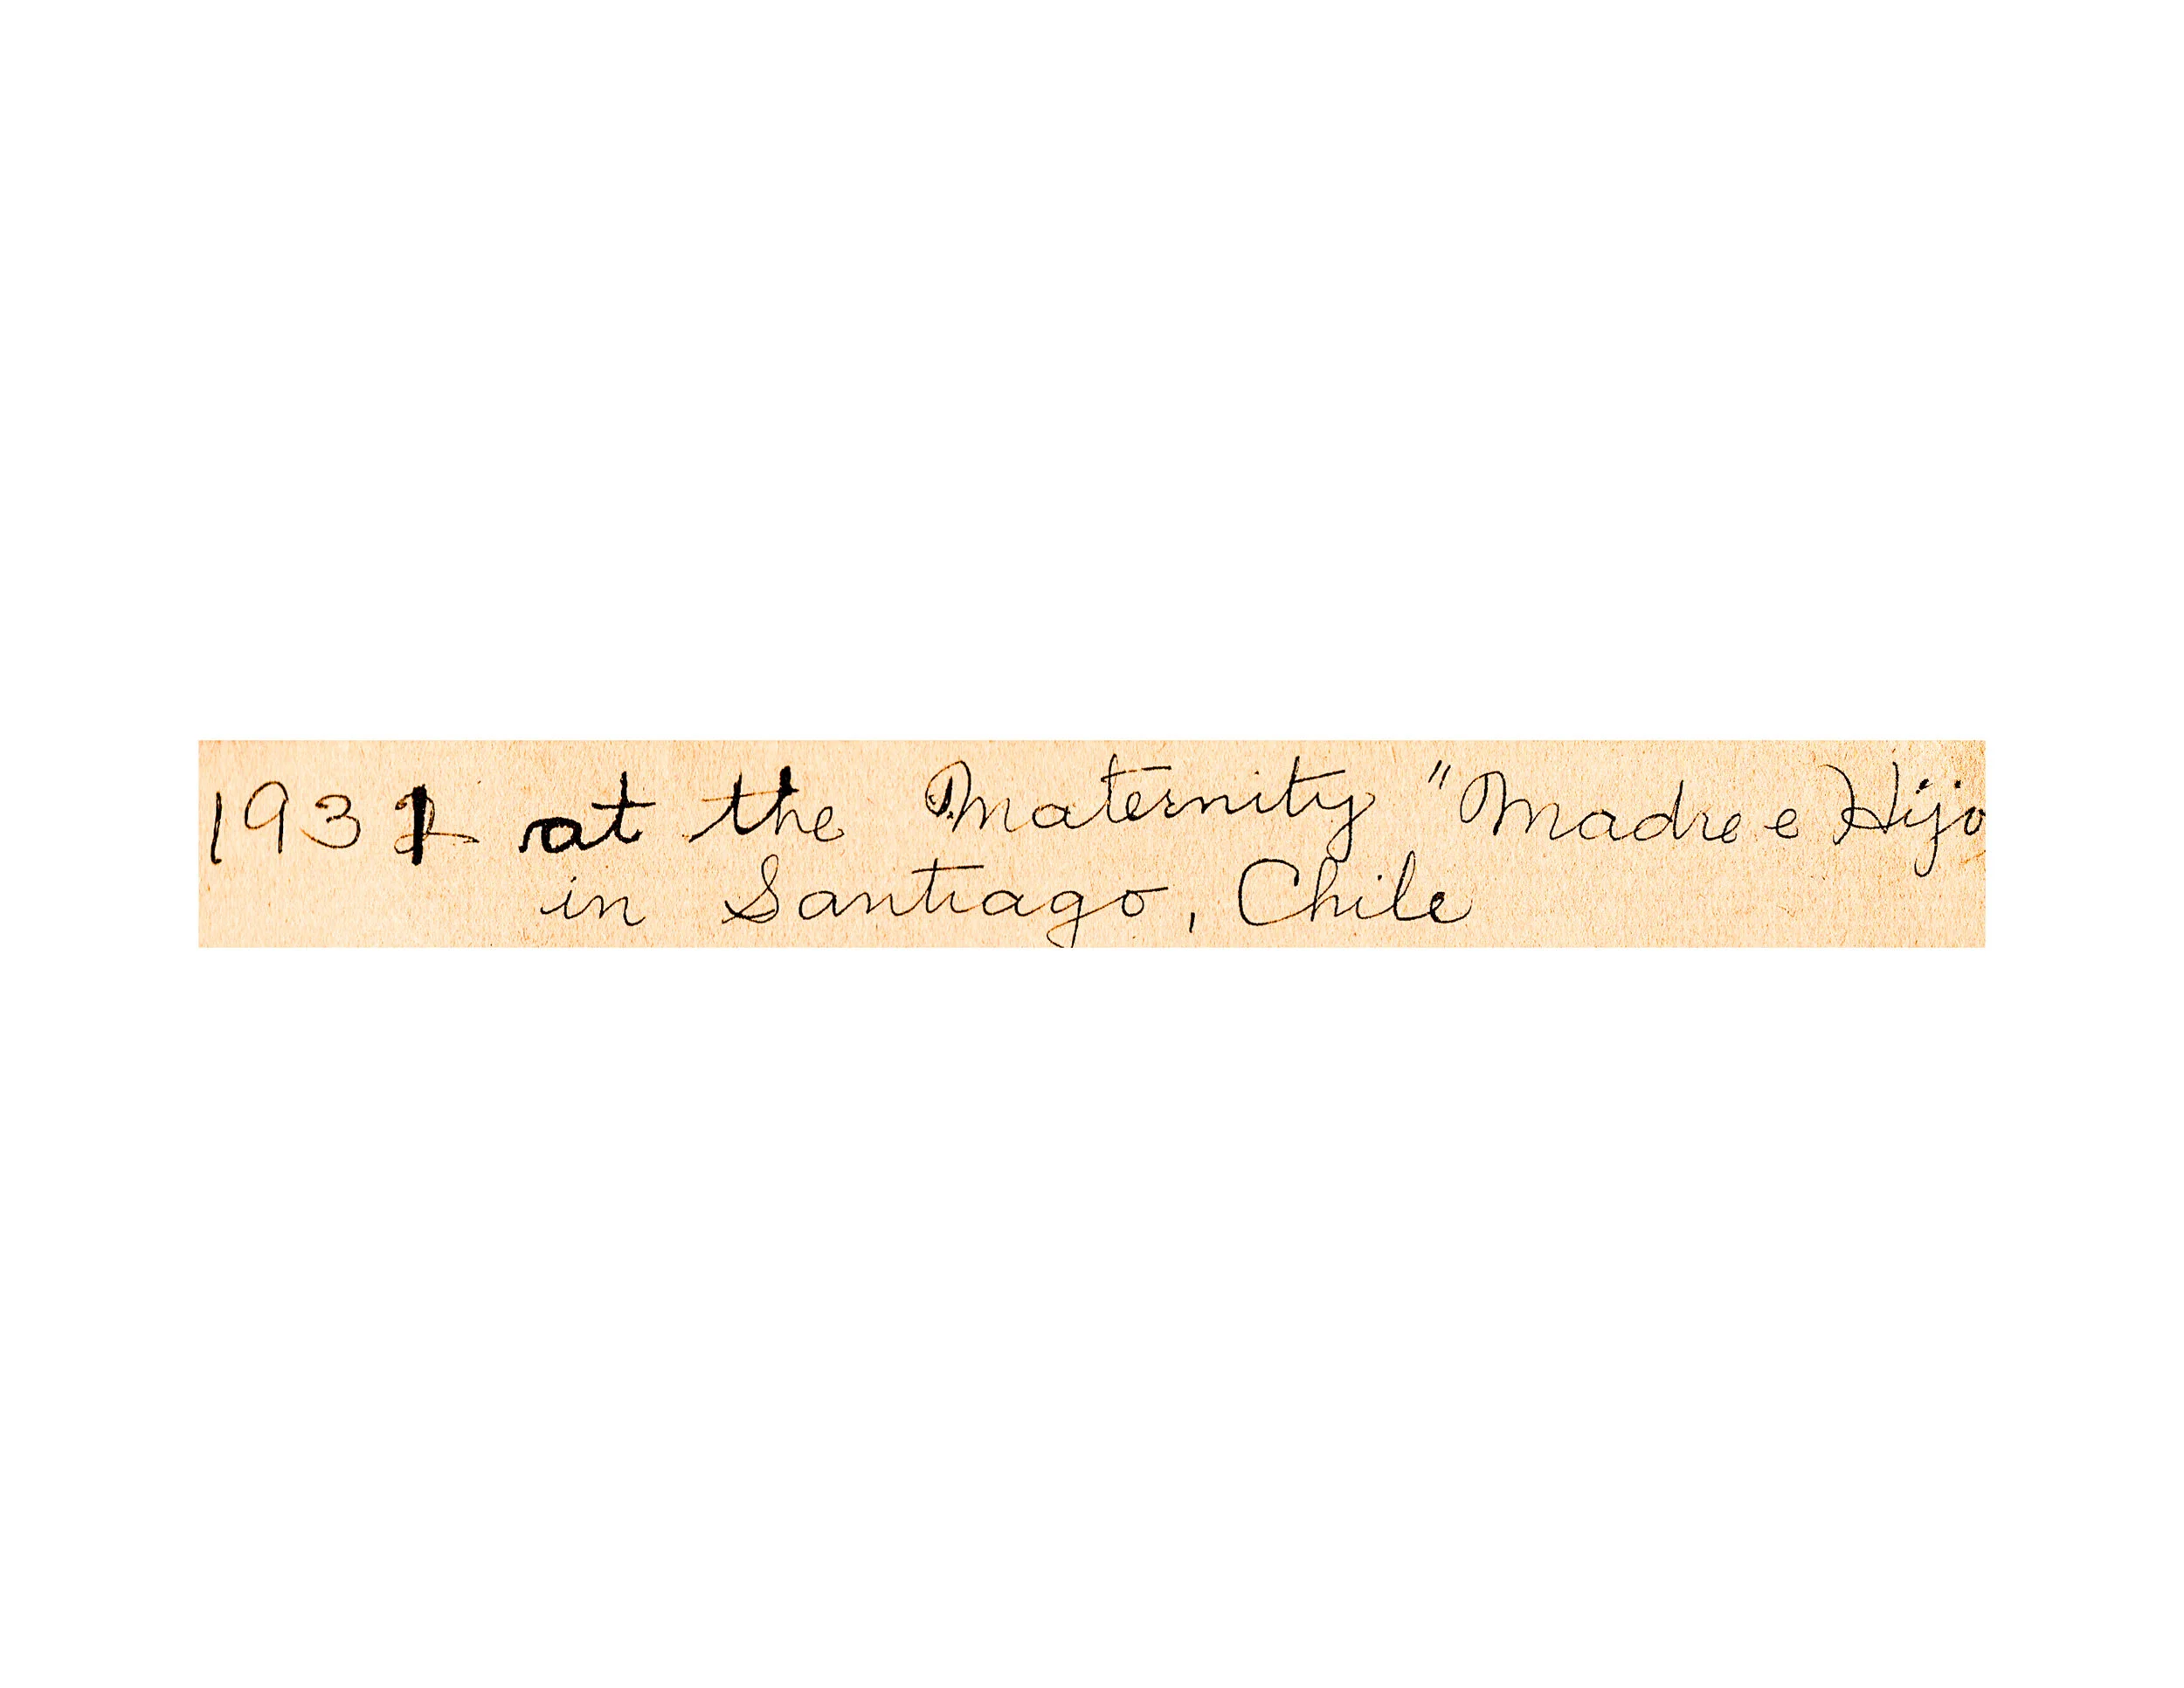 1931 at the Maternity "Madre e Hijo
in Santiago, Chile